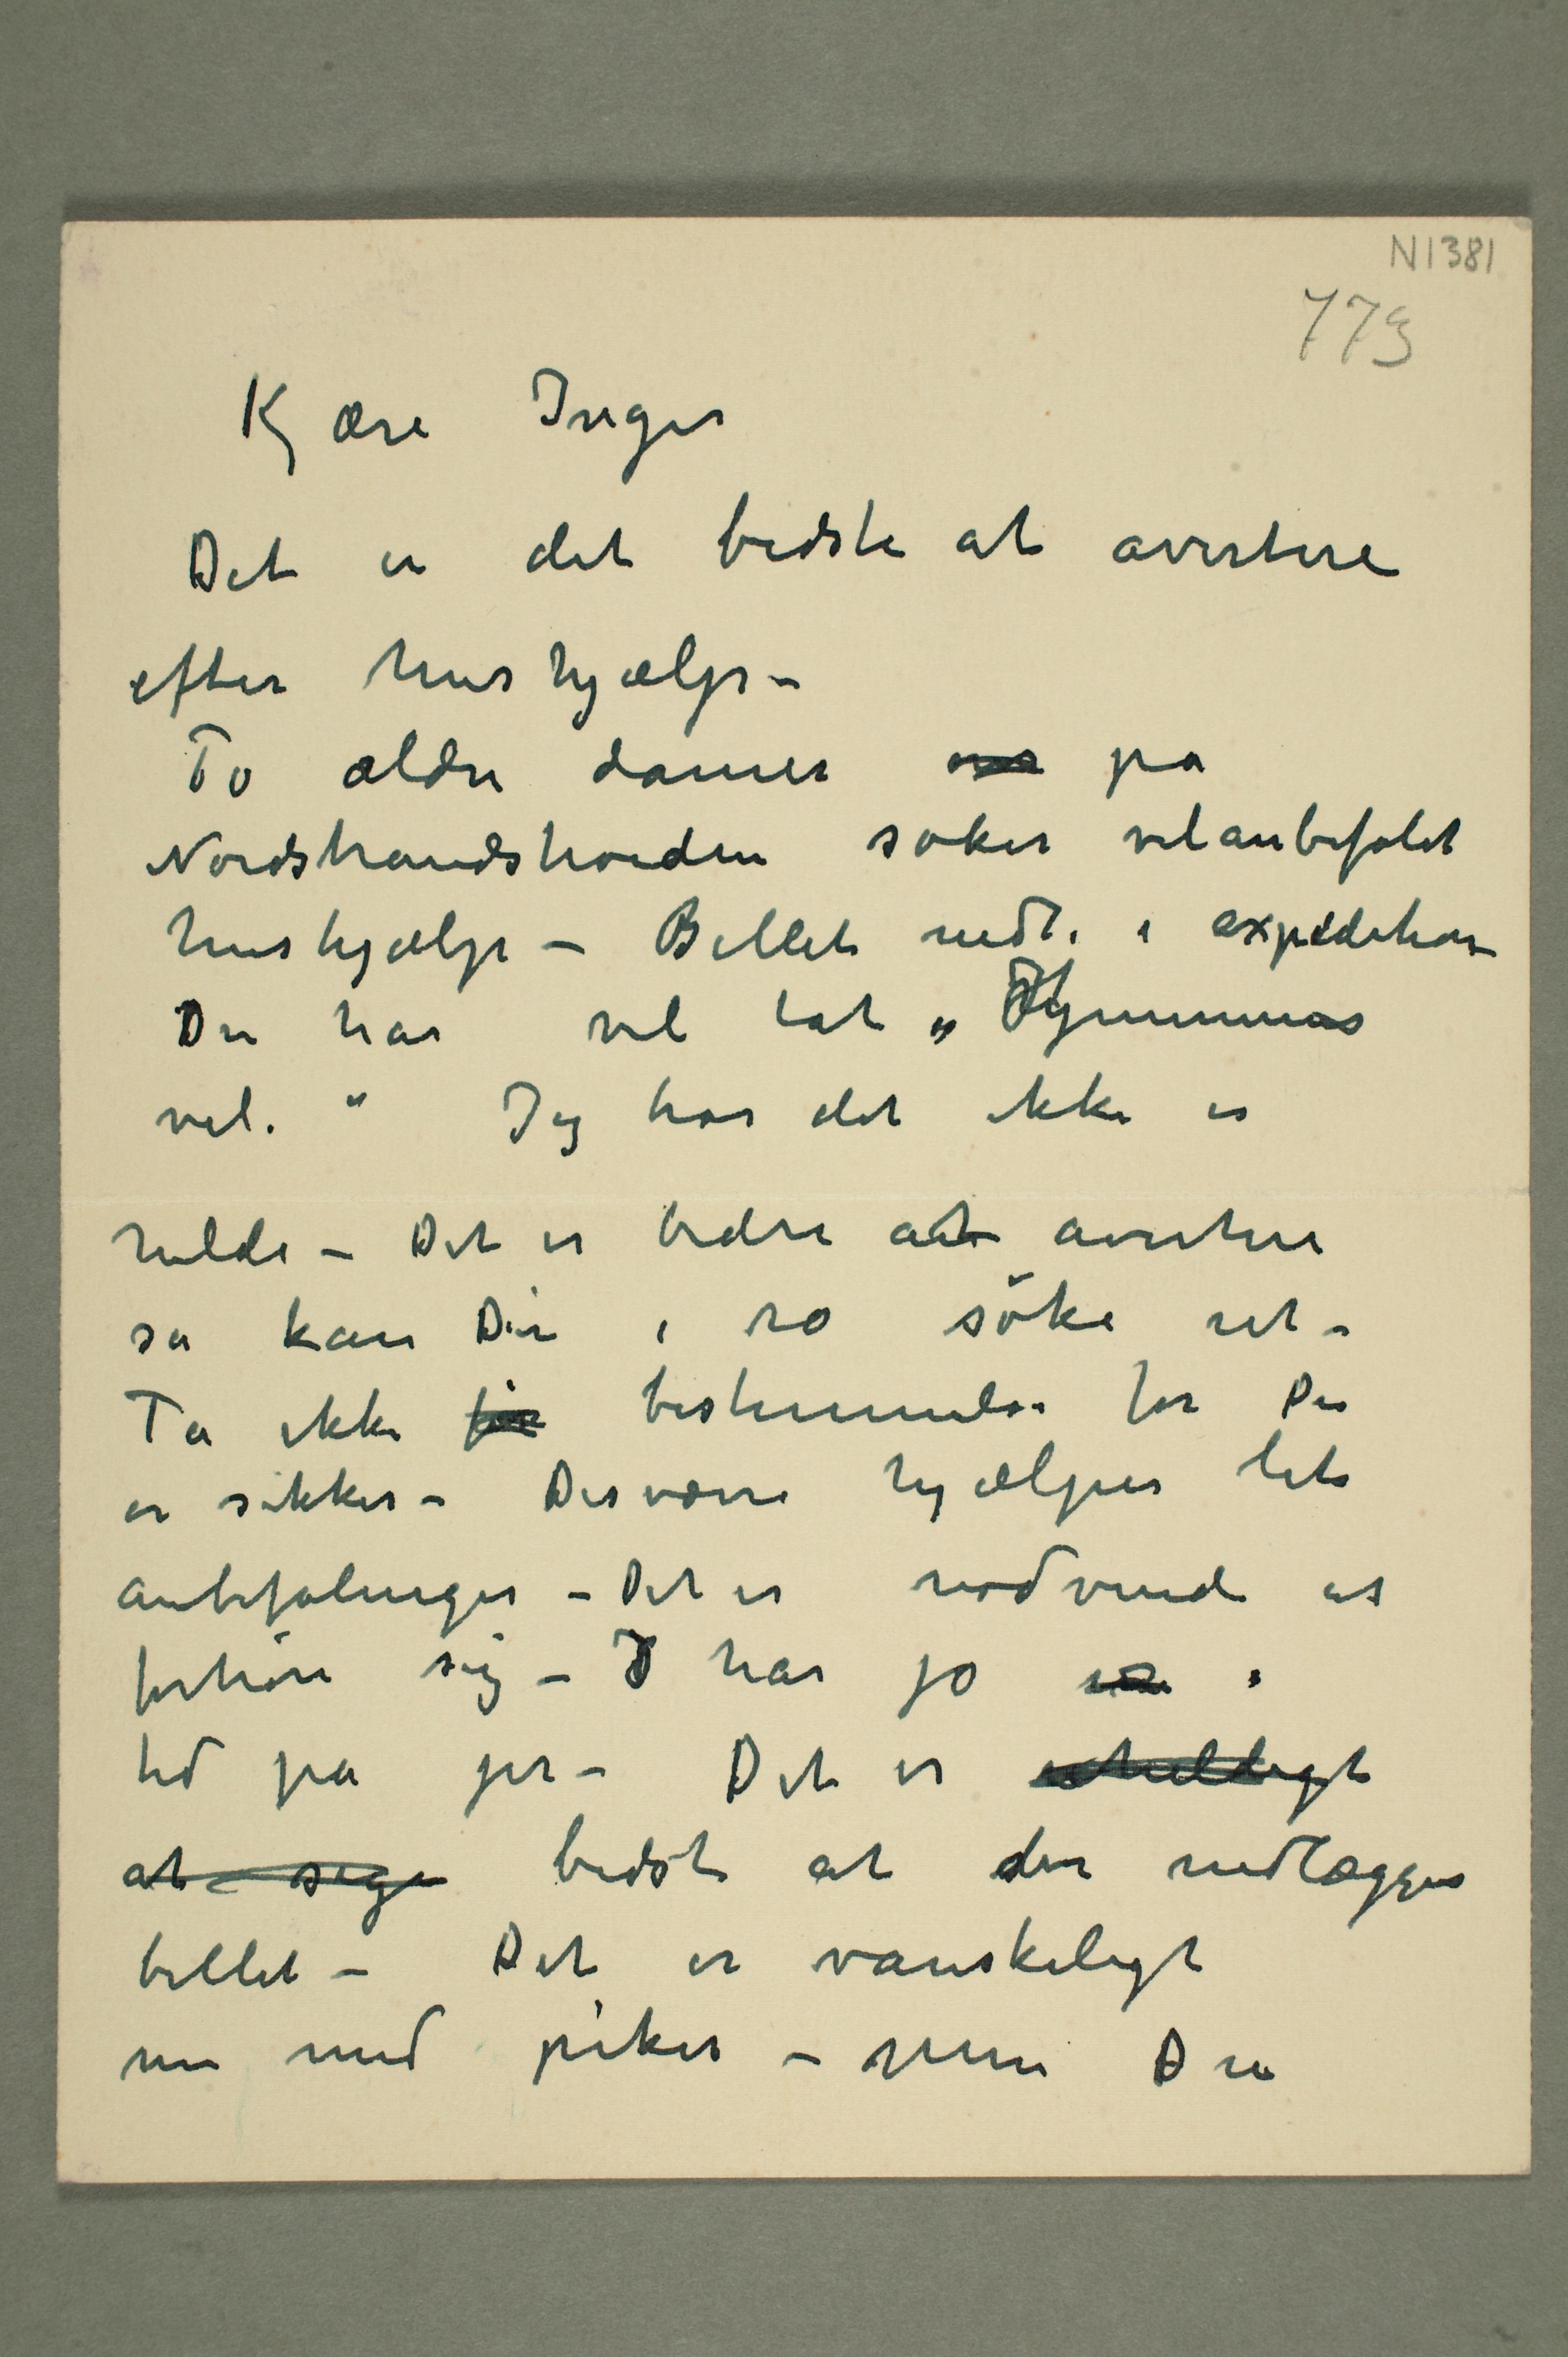 N1381
773
Kjære Inger
Det er det bedste at avertere
efter hushjælp –
To ældre damer på
Nordstrandshøiden søker velanbefalet
hushjælp – Billet nedl. i expedition
Du har vel tat „Hjemmenes
vel.“ Jeg har det ikke er
hulde – Det er bedre at avertere
så kan Du i ro søke ut –
Ta ikke før bestemmelse før Du
er sikker – Desværre hjælper lit
anbefalinger – Det er nødvend at
forhøre sig – I har jo i
tid på jer – Det er uheldigt
at sige bedst at der nedlægges
billet – Det er vanskeligt
nu med piker – men Du